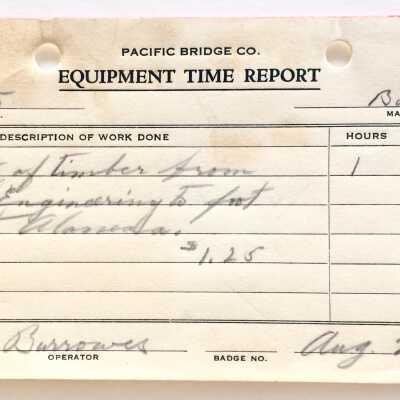 PACIFIC BRIDGE CO.
EQUIPMENT TIME REPORT
DESCRIPTION OF WORK DONE HOURS
of timber from 1
Engineering to foot
Alameda.
$1.25
Burrowes Aug. 2
OPERATOR BADGE NO.